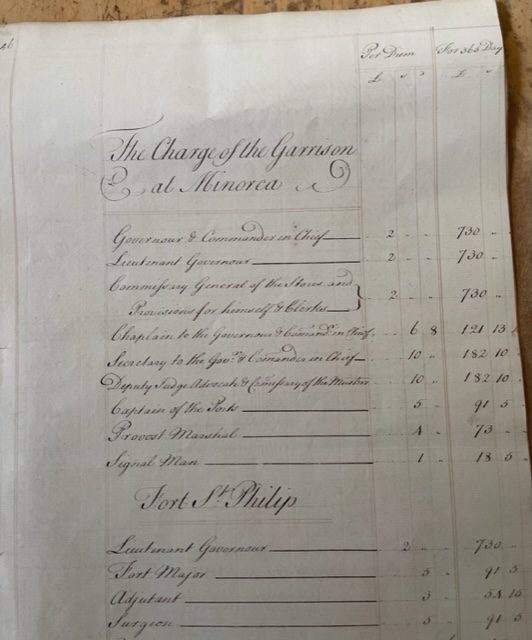 Per Diem For 365 Days
£ s d £ s
The Charge of the Garrison
at Minorca
Governour & Commander in Chief 2 .. .. 730 ..
Lieutenant Governour 2 .. .. 730 ..
Commissary General of the Stores and
Provisions for himself & Clerks 2 .. .. 730 ..
Chaplain to the Governour & Comandr. in Chief .. 6 8 121 13 4
Secretary to the Govr. & Comander in Chief .. 10 .. 182 10 ..
Deputy Judge Advocate & Comissary of the Musters .. 10 .. 182 10 ..
Captain of the Ports .. 5 .. 91 5
Provost Marshal .. 4 .. 73 ..
Signal Man .. 1 .. 18 5
Fort St. Philip
Lieutenant Governour 2 .. .. 730 ..
Fort Major .. 5 .. 91 5
Adjutant .. 3 .. 54 15
Surgeon .. 5 .. 91 5